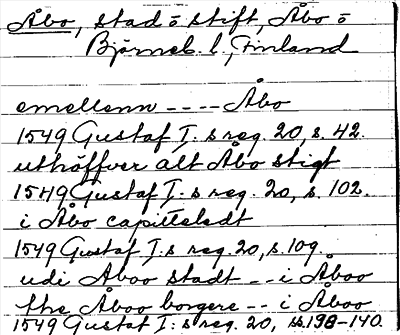 Åbo, stad o stift, Åbo o
Björneb. l., Finland
emellenn ---- Åbo
1549 Gustaf I:s reg. 20, s. 42.
uthöffver alt Åbo stigt
1549 Gustaf I:s reg. 20, s. 102.
i Åbo capittelstdt
1549 Gustaf I:s reg. 20, s. 109.
udi Åboo stadt -- i Åboo
the Åboo borgere -- i Åboo
1549 Gustaf I:s reg. 20, ss. 139-140.